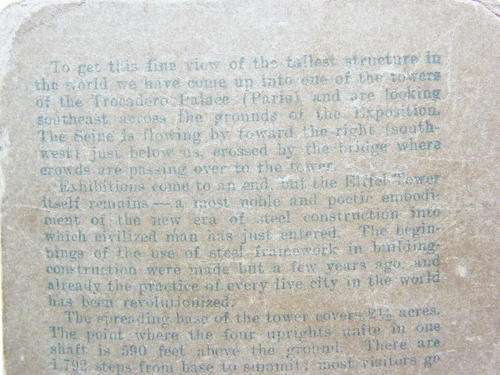 To get this fine view of the tallest structure in
the world we have come up into one of the towers
of the Trocadero Palace (Paris) and are looking
southeast across the grounds of the Exposition.
The Seine is flowing by toward the right (south-
west) just below us, crossed by the bridge where
crowds are passing over to the tower.
Exhibitions come to an end, but the Eiffel Tower
itself remains—a most noble and poetic embodi-
ment of the new era of steel construction into
which civilized man has just entered. The begin-
nings of the use of steel framework in building-
construction were made but a few years ago, and
already the practice of every live city in the world
has been revolutionized.
The spreading base of the tower covers 2½ acres.
The point where the four uprights unite in one
shaft is 590 feet above the ground. There are
1,792 steps from base to summit; most visitors go